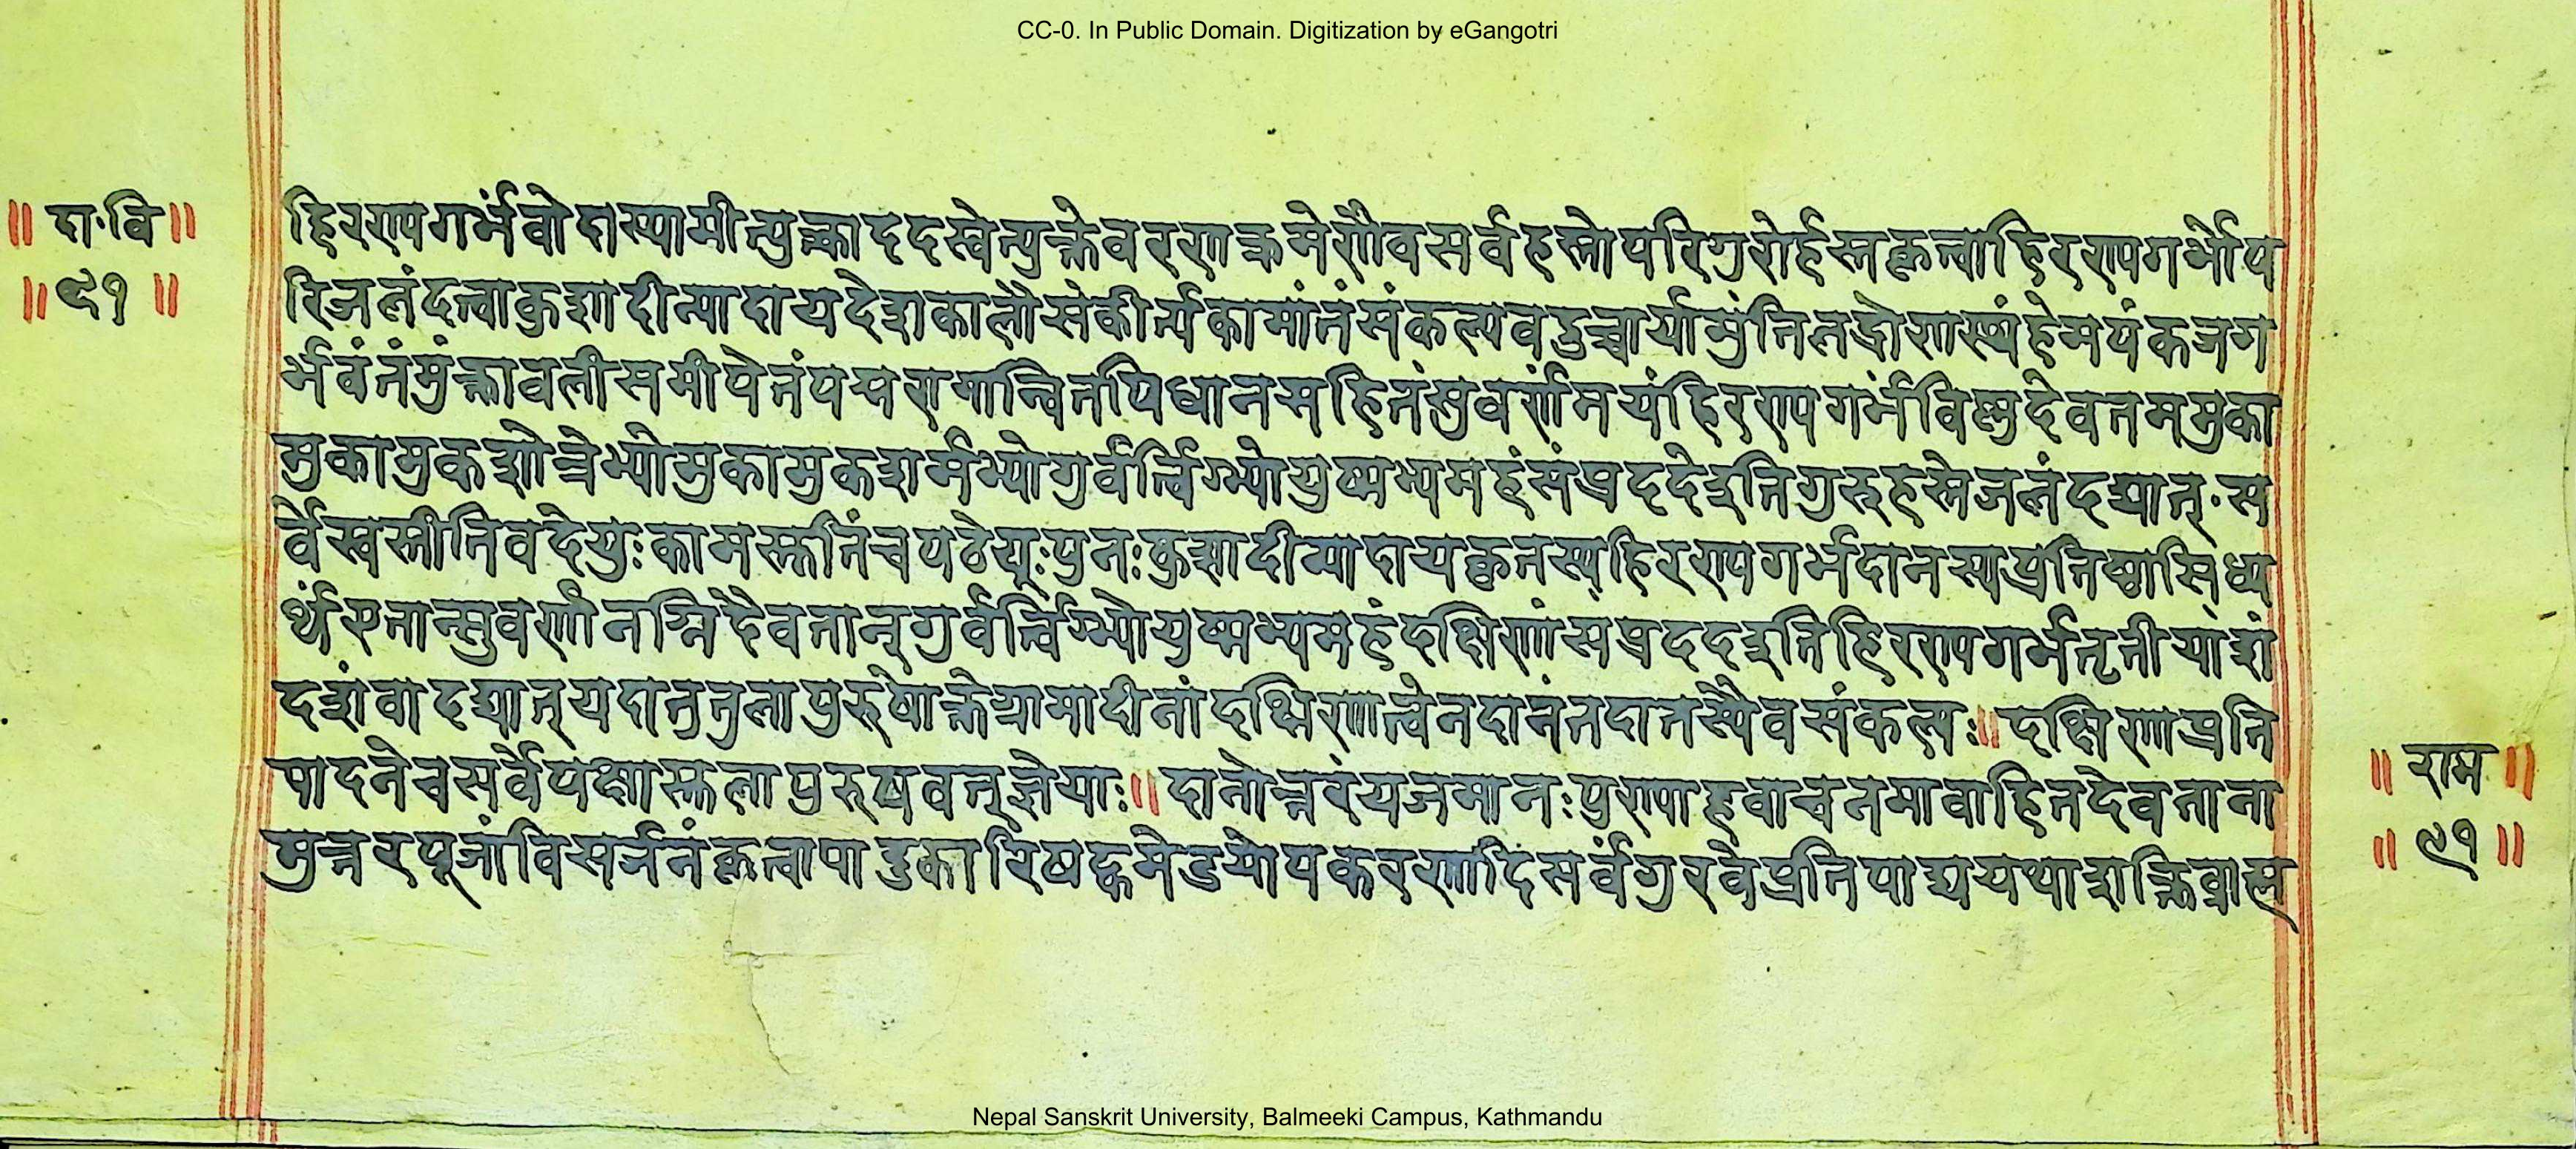 CC-0. In Public Domain. Digitization by eGangotri
॥ दा॰वि॥
॥९१॥
हिरण्यगर्भंवोदास्यामीत्युक्त्वाददस्वेत्युक्तेवरणक्रमेणैवसर्वहस्तोपरिगुरोर्हस्तंकृत्वाहिरण्यगर्भोप
रिजलंदत्वाकुशादीन्यादायदेशकालौसंकीर्त्यकामांतंसंकल्पवदुच्चार्यामुंतिलद्रोणस्थंहेमपंकजग
र्भवंतंमुक्तावलीसमीपेतंपद्मरागान्वितपिधानसहितंसुवर्णमयंहिरण्यगर्भंविष्णुदेवतममुका
मुकामुकगोत्रेभ्योमुकामुकशर्मभ्योगुर्वर्त्विग्भ्योयुष्मभ्यमहंसंप्रददेइतिगुरुहस्तेजलंदद्यात्॰स
र्वेस्वस्तीतिवदेयुःकामस्तुतिंचपठेयुःपुनःकुशादीन्यादायकृतस्यहिरण्यगर्भदानस्यप्रतिष्ठासिध्य
र्थंएतान्सुवर्णानग्निदैवतान्गुर्वर्त्विग्भ्योयुष्मभ्यमहंदक्षिणांसंप्रददइतिहिरण्यगर्भतृतीयांशं
दशंवादद्यात्यदातुतुलापुरुषोक्तेग्रामादीनांदक्षिणात्वेनदानंतदातस्यैवसंकल्पः॥दक्षिणाप्रति
पादनेचसर्वेपक्षास्तुलापुरुषवत्ज्ञेयाः॥दानोत्तरंयजमानःपुण्याहवाचनमावाहितदेवताना
मुत्तरपूजांविसर्जनंकृत्वापादुका सर्वंगुरवेप्रतिपाद्ययथाशक्तिब्राह्म
॥ राम ॥
॥ ९१ ॥
Nepal Sanskrit University, Balmeeki Campus, Kathmandu